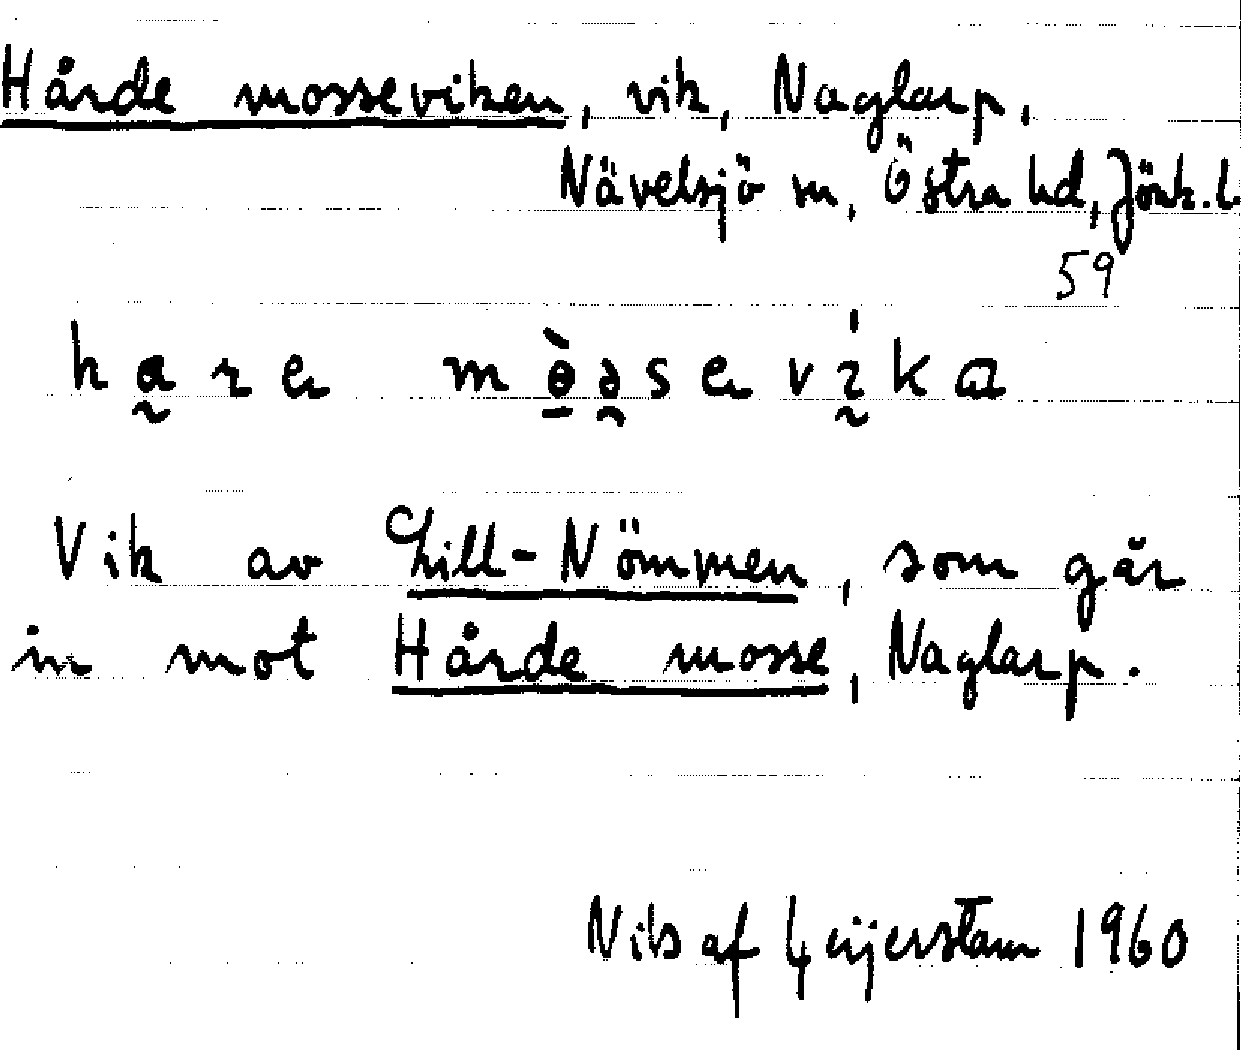 Hårde mosseviken, vik, Naglarp,
Nävelsjö sn, Östra hd, Jönk. l.
59
Vik av Lill-Nömmen, som går
in mot Hårde mosse, Naglarp.
Nils af Geijerstam 1960